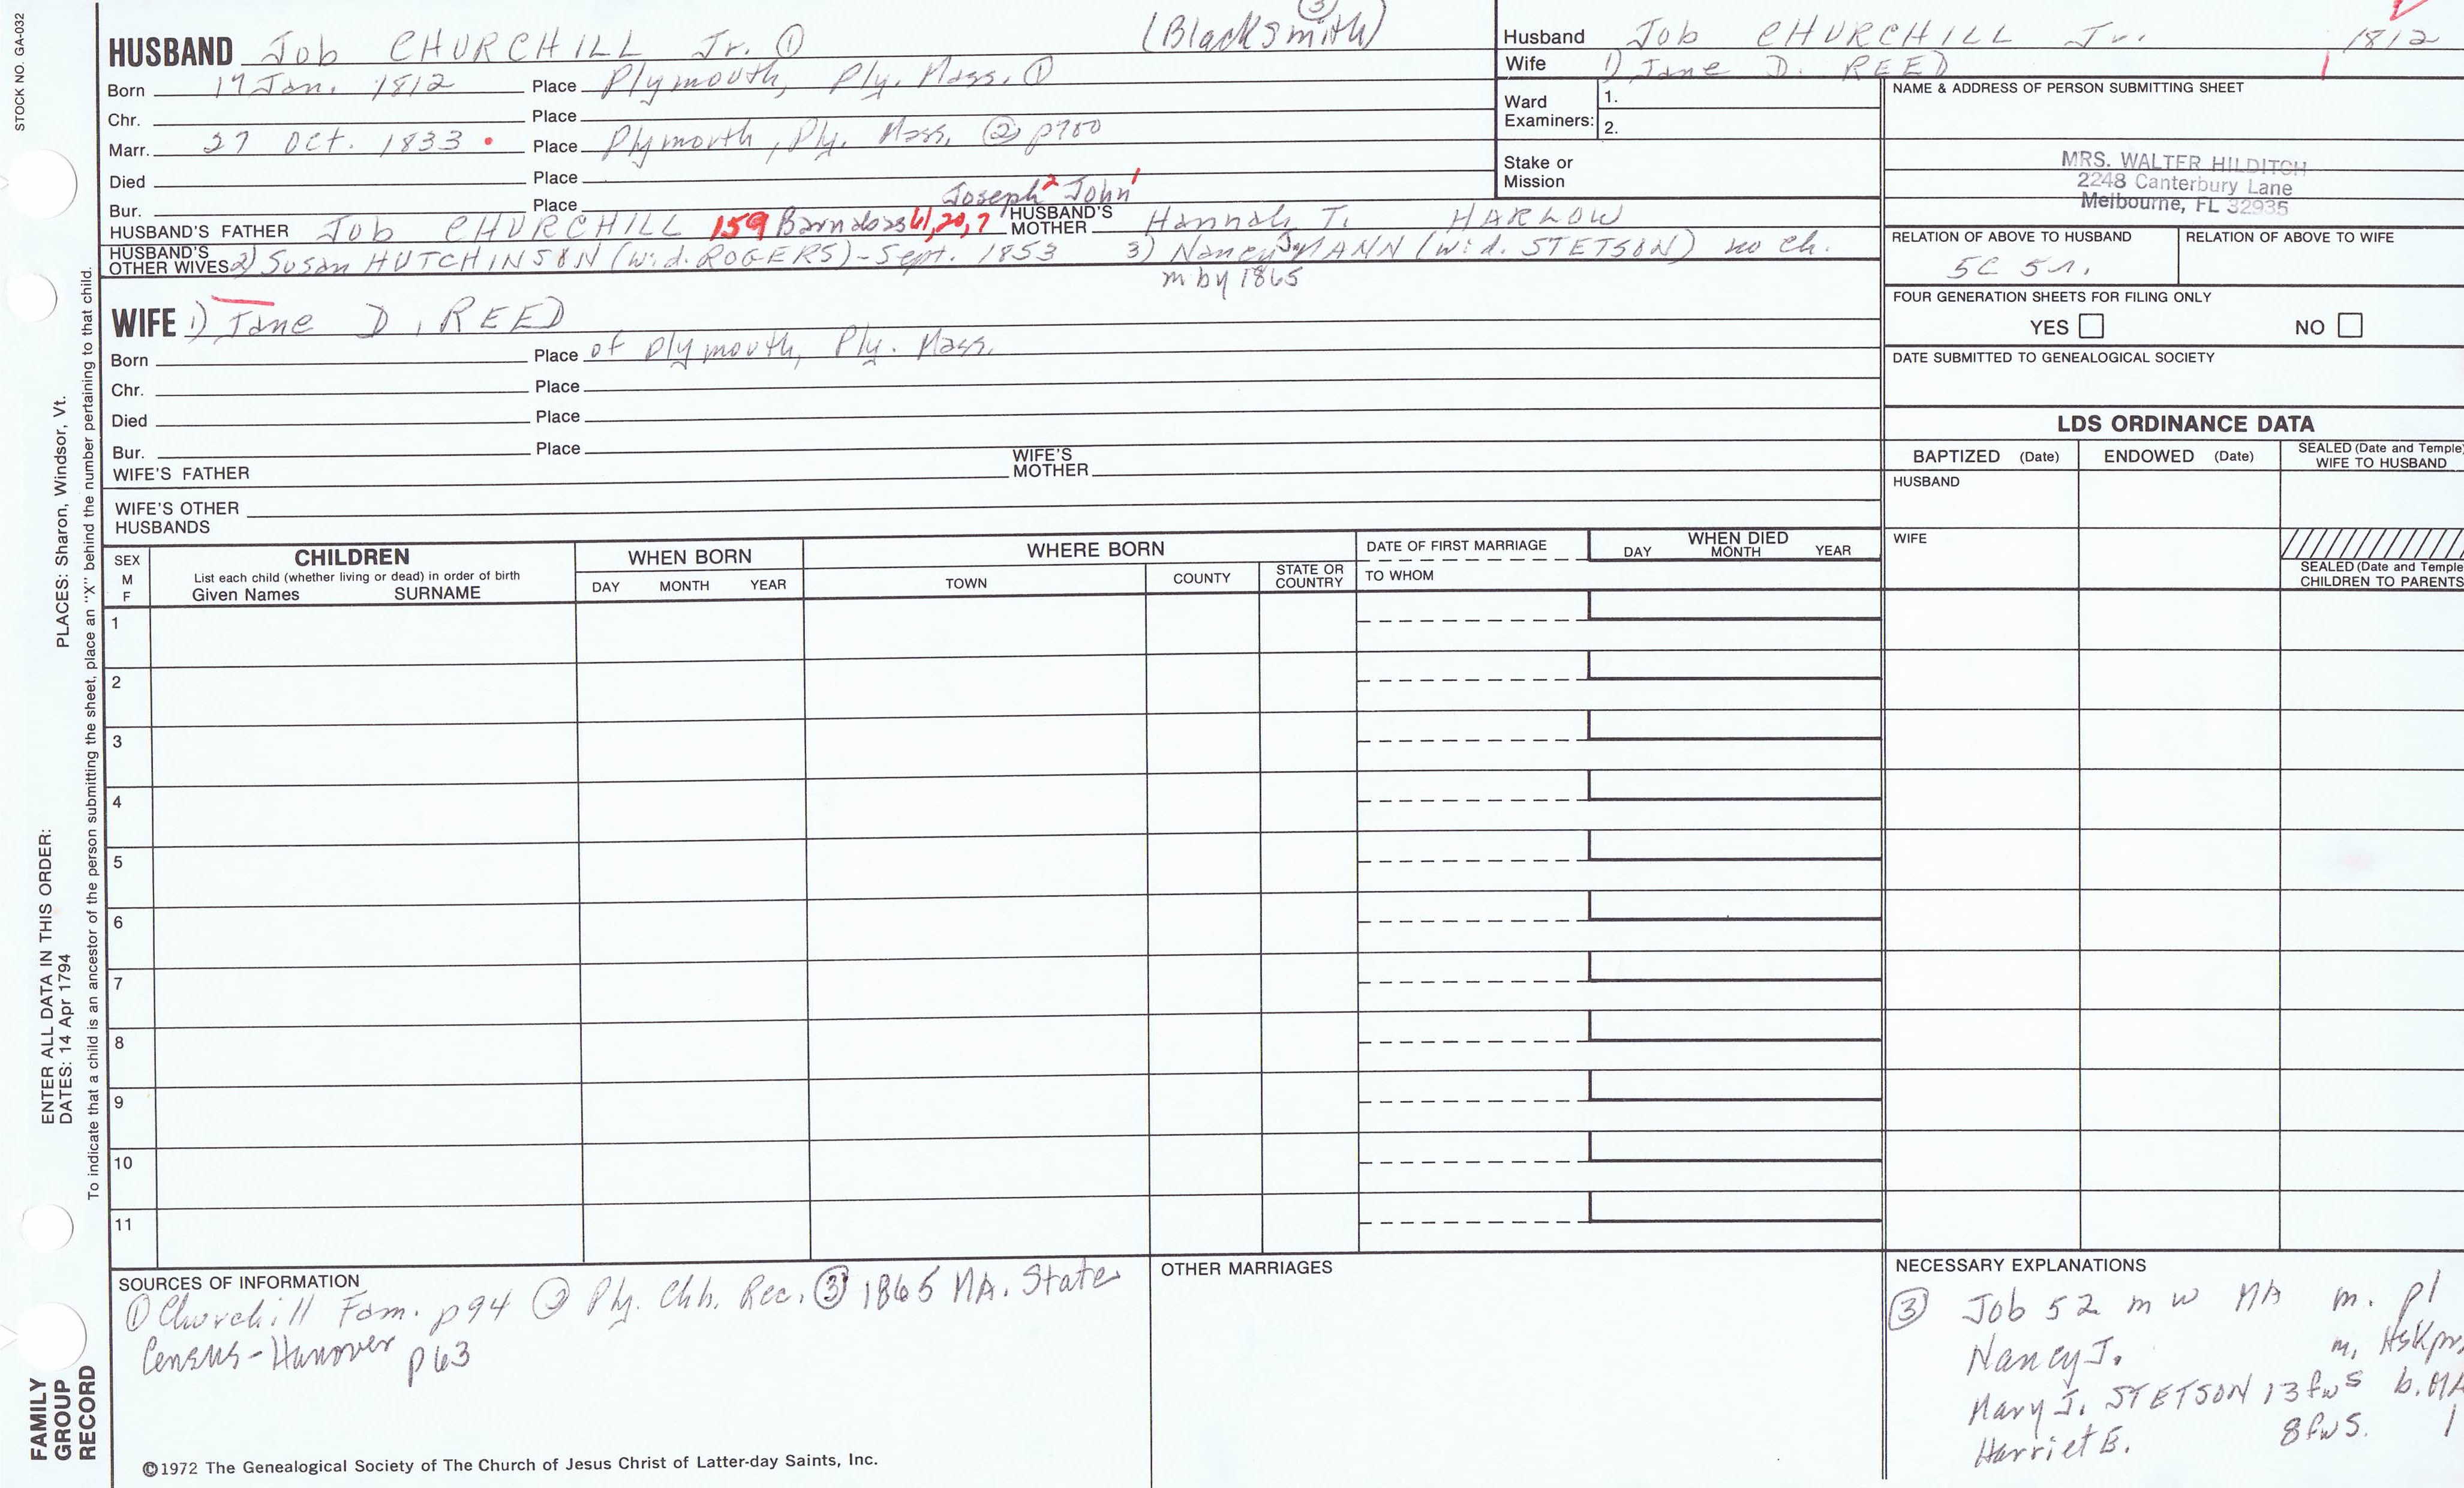 STOCK NO. GA-032
HUSBAND Job CHURCHILL Jr. ① (Blacksmith) ③
Born 17 Jan. 1812 Place Plymouth, Ply. Mass. ①
Chr. Place
Marr. 27 Oct. 1833 Place Plymouth, Ply. Mass. ②
Died Place
Bur. Place
Joseph² John¹
HUSBAND'S FATHER Job CHURCHILL 159 Barnabas HUSBAND'S MOTHER Hannah T. HARLOW
HUSBAND'S OTHER WIVES 2) Susan HUTCHINSON (wid. ROGERS) - Sept. 1853 3) Nancy J. MANN (wid. STETSON) no ch.
m by 1865
WIFE 1) Jane D. REED
Born Place of Plymouth, Ply. Mass.
Chr. Place
Died Place
Bur. Place
WIFE'S FATHER WIFE'S MOTHER
WIFE'S OTHER HUSBANDS
Husband Job CHURCHILL Jr. 1812
Wife 1) Jane D. REED
Ward Examiners: 1.
2.
Stake or Mission
NAME & ADDRESS OF PERSON SUBMITTING SHEET
MRS. WALTER HILDITCH
2248 Canterbury Lane
Melbourne, FL 32935
RELATION OF ABOVE TO HUSBAND RELATION OF ABOVE TO WIFE
5C 5r.
FOUR GENERATION SHEETS FOR FILING ONLY
YES NO
DATE SUBMITTED TO GENEALOGICAL SOCIETY
LDS ORDINANCE DATA
BAPTIZED (Date) ENDOWED (Date) SEALED (Date and Temple) WIFE TO HUSBAND
HUSBAND
WIFE
SEALED (Date and Temple) CHILDREN TO PARENTS
SEX M F
CHILDREN
List each child (whether living or dead) in order of birth
Given Names SURNAME
WHEN BORN
DAY MONTH YEAR
WHERE BORN
TOWN COUNTY STATE OR COUNTRY
DATE OF FIRST MARRIAGE
TO WHOM
WHEN DIED
DAY MONTH YEAR
1
2
3
4
5
6
7
8
9
10
11
SOURCES OF INFORMATION
① Churchill Fam. p94 ② Ply. Chh. Rec. ③ 1865 MA. State
Census - Hanover p63
OTHER MARRIAGES
NECESSARY EXPLANATIONS
③ Job 52 m w MA m. pl
Nancy J. m,
Mary J. STETSON 13 fws b. MA
Harriet E. 8 fws.
©1972 The Genealogical Society of The Church of Jesus Christ of Latter-day Saints, Inc.
FAMILY GROUP RECORD
ENTER ALL DATA IN THIS ORDER:
DATES: 14 Apr 1794
PLACES: Sharon, Windsor, Vt.
To indicate that a child is an ancestor of the person submitting the sheet, place an "X" behind the number pertaining to that child.